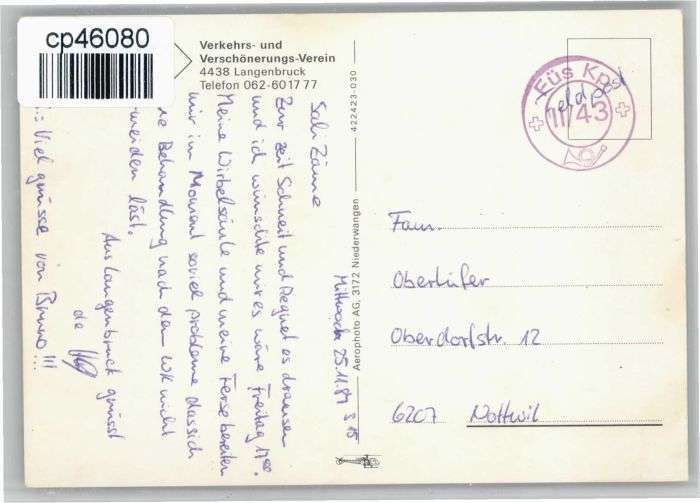 cp46080
Verkehrs- und
Verschönerungs-Verein
4438 Langenbruck
Telefon 062-60 17 77
422423-030
Aerophoto AG, 3172 Niederwangen
Füs Kp
II/43
Feldpost
Mittwoch 25.11.87
Sali Zäme
Zur zeit Schneit und Regnet es draussen
und ich wünschte mir es wäre Freitag 17⁰⁰.
Meine Wirbelsäule und meine Ferse bereiten
mir im Moment soviel probleme dass ich
die Behandlung nach dem WK nicht
meiden läst.
Aus Langenbruck grüsst
de
Viel grüsse von Bruno!!!
Fam.
Oberlüfer
Oberdorfstr. 12
6207 Nottwil